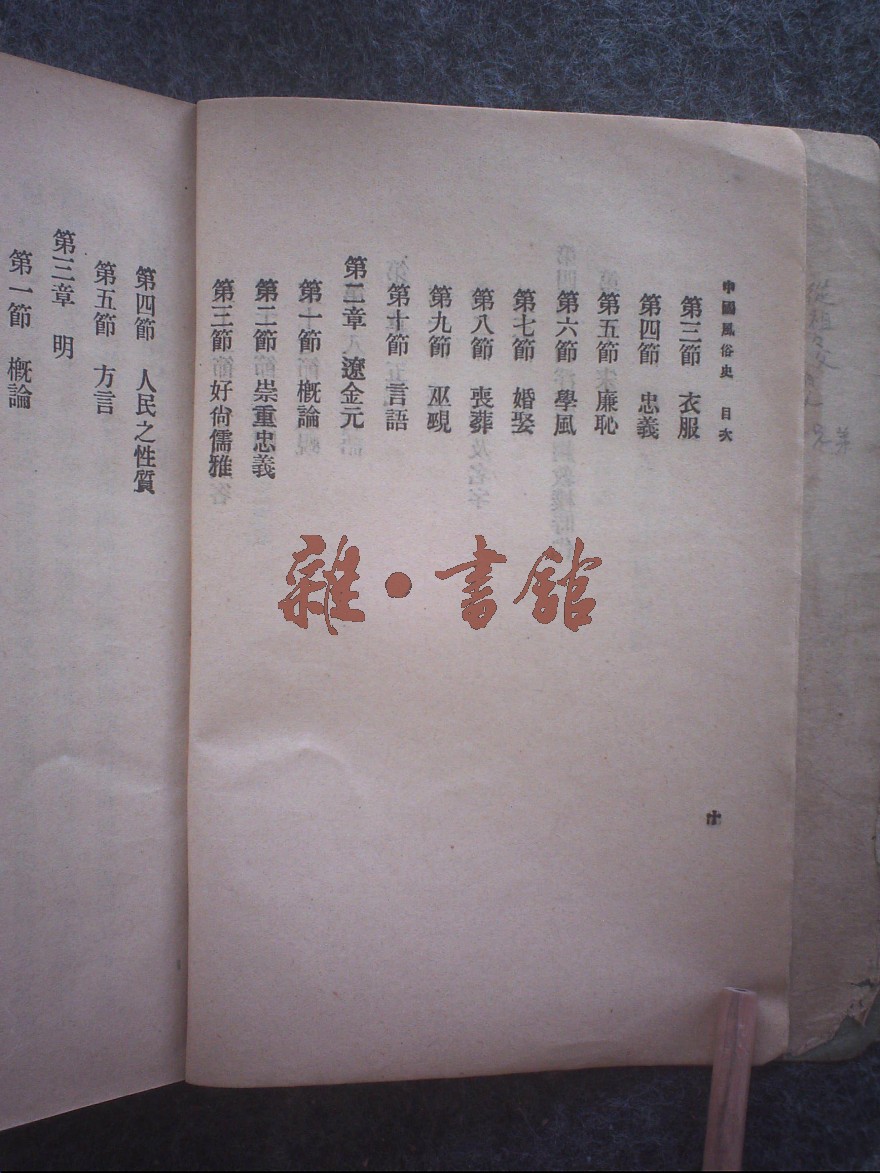 中國風俗史　目次
第三節　衣服
第四節　忠義
第五節　廉恥
第六節　學風
第七節　婚娶
第八節　喪葬
第九節　巫覡
第十節　言語
第二章　遼金元
第一節　概論
第二節　崇重忠義
第三節　好尙儒雅
十
第四節　人民之性質
第五節　方言
第三章　明
第一節　概論
雜·書館